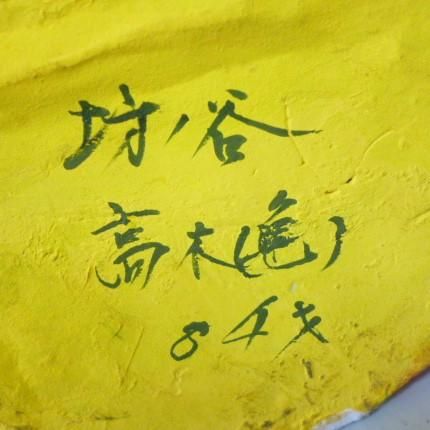 坊ノ谷
高木(亀)
84才